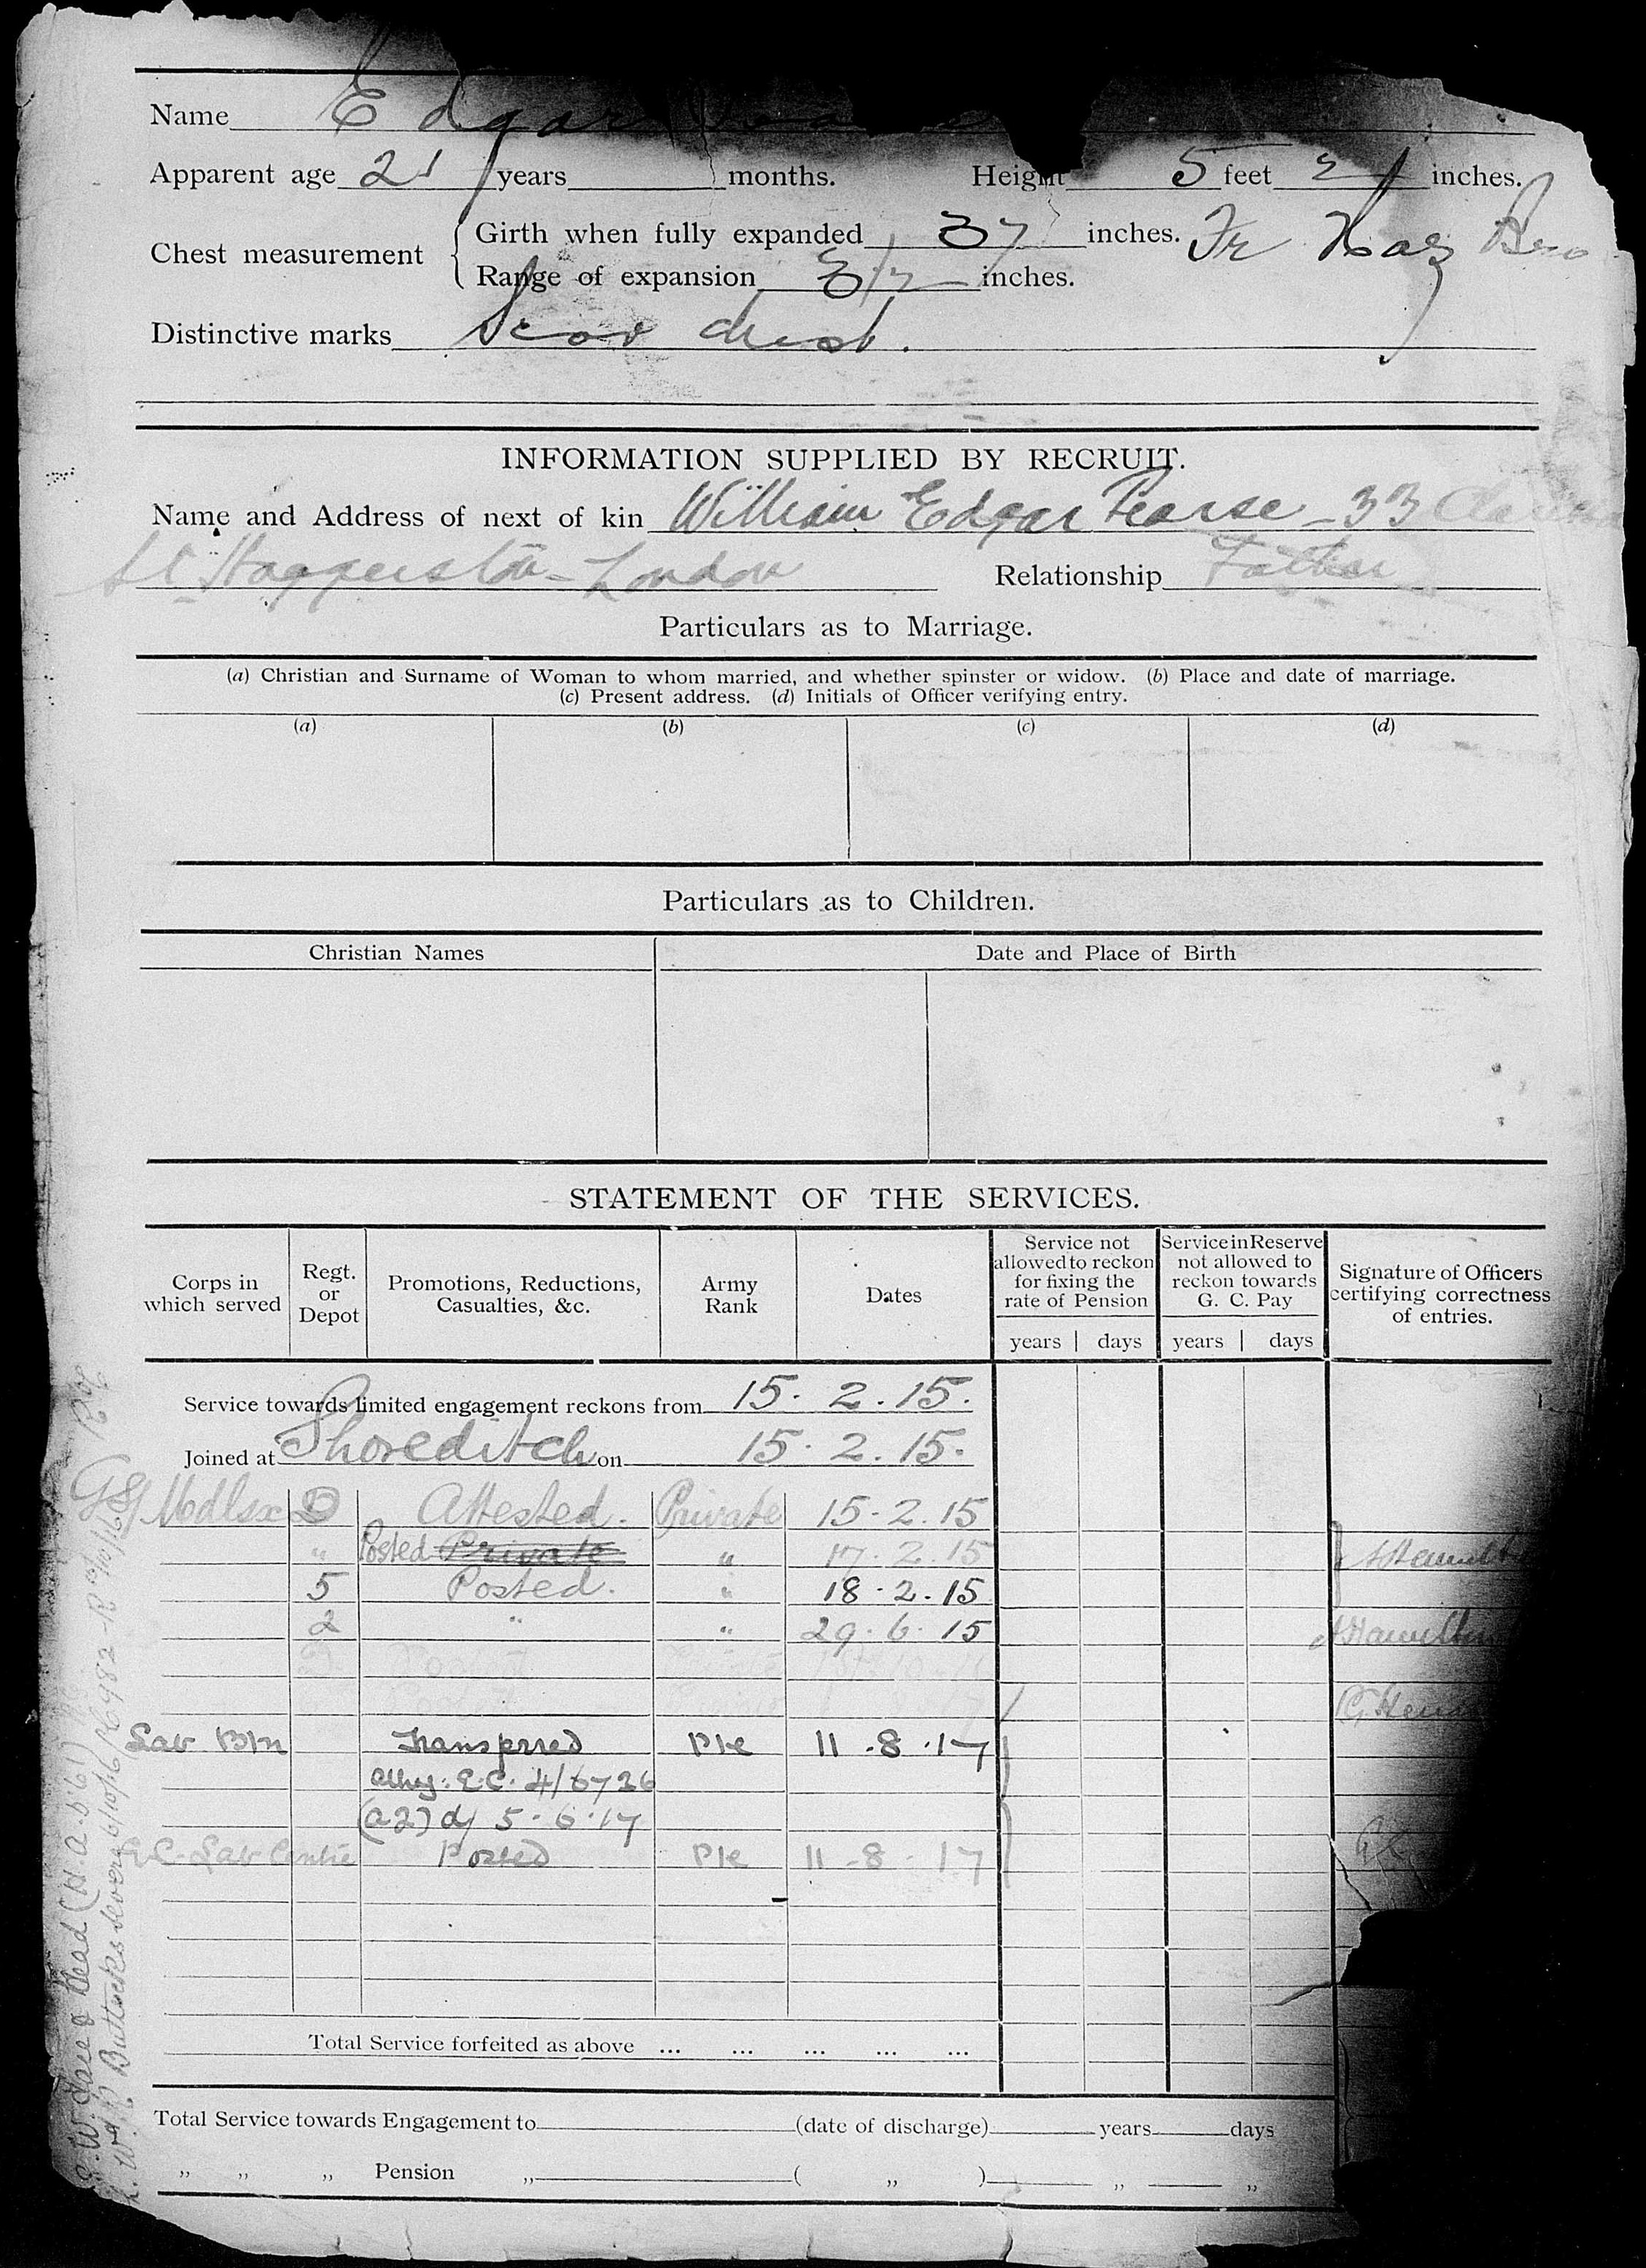 Name Edgar
Apparent age 21 years months. Height 5 feet 2 inches.
Chest measurement
Girth when fully expanded 37 inches. Fr Haz Bro
Range of expansion 3 1/2 inches.
Distinctive marks Scar chest.
INFORMATION SUPPLIED BY RECRUIT.
Name and Address of next of kin William Edgar Pearse - 33
St Haggerston - London Relationship Father
Particulars as to Marriage.
(a) Christian and Surname of Woman to whom married, and whether spinster or widow. (b) Place and date of marriage.
(c) Present address. (d) Initials of Officer verifying entry.
(a) (b) (c) (d)
Particulars as to Children.
Christian Names Date and Place of Birth
STATEMENT OF THE SERVICES.
Corps in which served
Regt. or Depot
Promotions, Reductions, Casualties, &c.
Army Rank
Dates
Service not allowed to reckon for fixing the rate of Pension
years days
Service in Reserve not allowed to reckon towards G. C. Pay
years days
Signature of Officers certifying correctness of entries.
Service towards limited engagement reckons from 15. 2. 15.
Joined at Shoreditch on 15. 2. 15.
Mdlsx D Attested. Private 15. 2. 15
" Posted Private " 17. 2. 15
5 Posted. " 18. 2. 15
2 " " 29. 6. 15
Posted
Posted
Lab Btn Transferred Pte 11 . 8 . 17
Athy: E.C. 4/6726
(a2) d/ 5. 6. 17
E.C. Lab Centre Posted Pte 11 . 8 . 17
Total Service forfeited as above ... ... ... ... ...
Total Service towards Engagement to (date of discharge) years days
" " " Pension " ( " ) " "
G.S.W. Face & Head (H.A. 5'61)
G.S.W. Buttocks severe 6/10/16